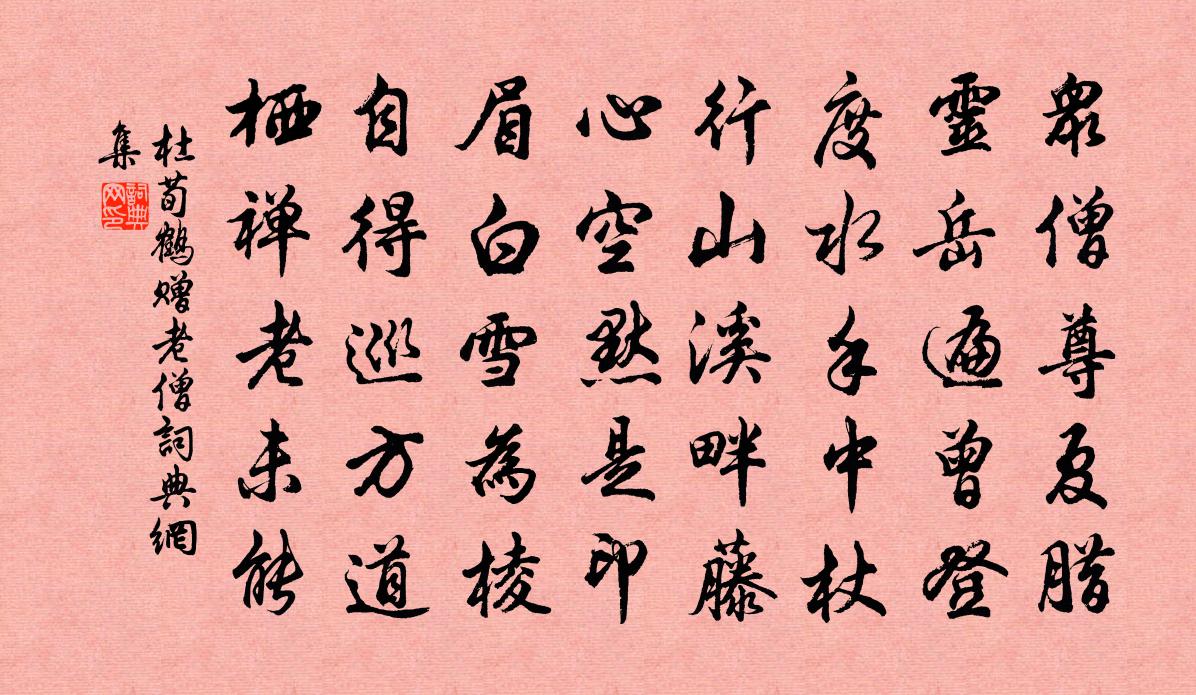 眾僧尊夏腊
靈岳遍曾登
度水手中杖
行山溪畔藤
心空默是印
眉白雪為棱
自得巡方道
栖禅老未能
杜荀鶴贈老僧詞典網
集
詞典
网印